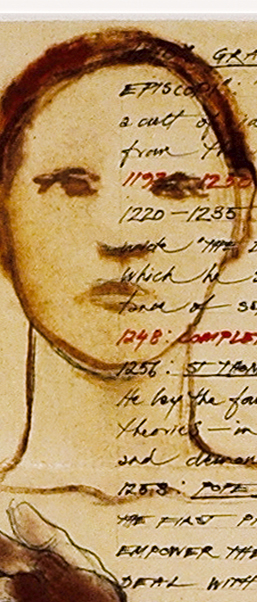 GRA
EPISCOP
a cult of
from the
1192 - 1250
1220 - 1235
inside "THE
which he
tance of se
1248: COMPLET
1256: ST THOM
He lay the fou
theories - in
and demon
1258: POPE
THE FIRST PI
EMPOWER THE
DEAL WITH